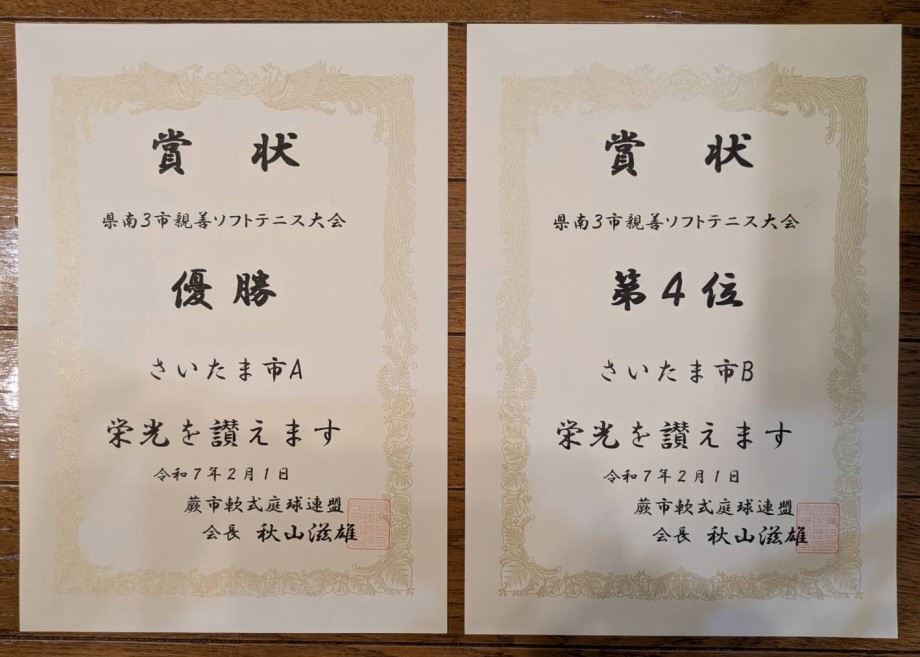 賞状
県南3市親善ソフトテニス大会
優勝
さいたま市A
栄光を讃えます
令和7年2月1日
蕨市軟式庭球連盟
会長 秋山滋雄
賞状
県南3市親善ソフトテニス大会
第4位
さいたま市B
栄光を讃えます
令和7年2月1日
蕨市軟式庭球連盟
会長 秋山滋雄